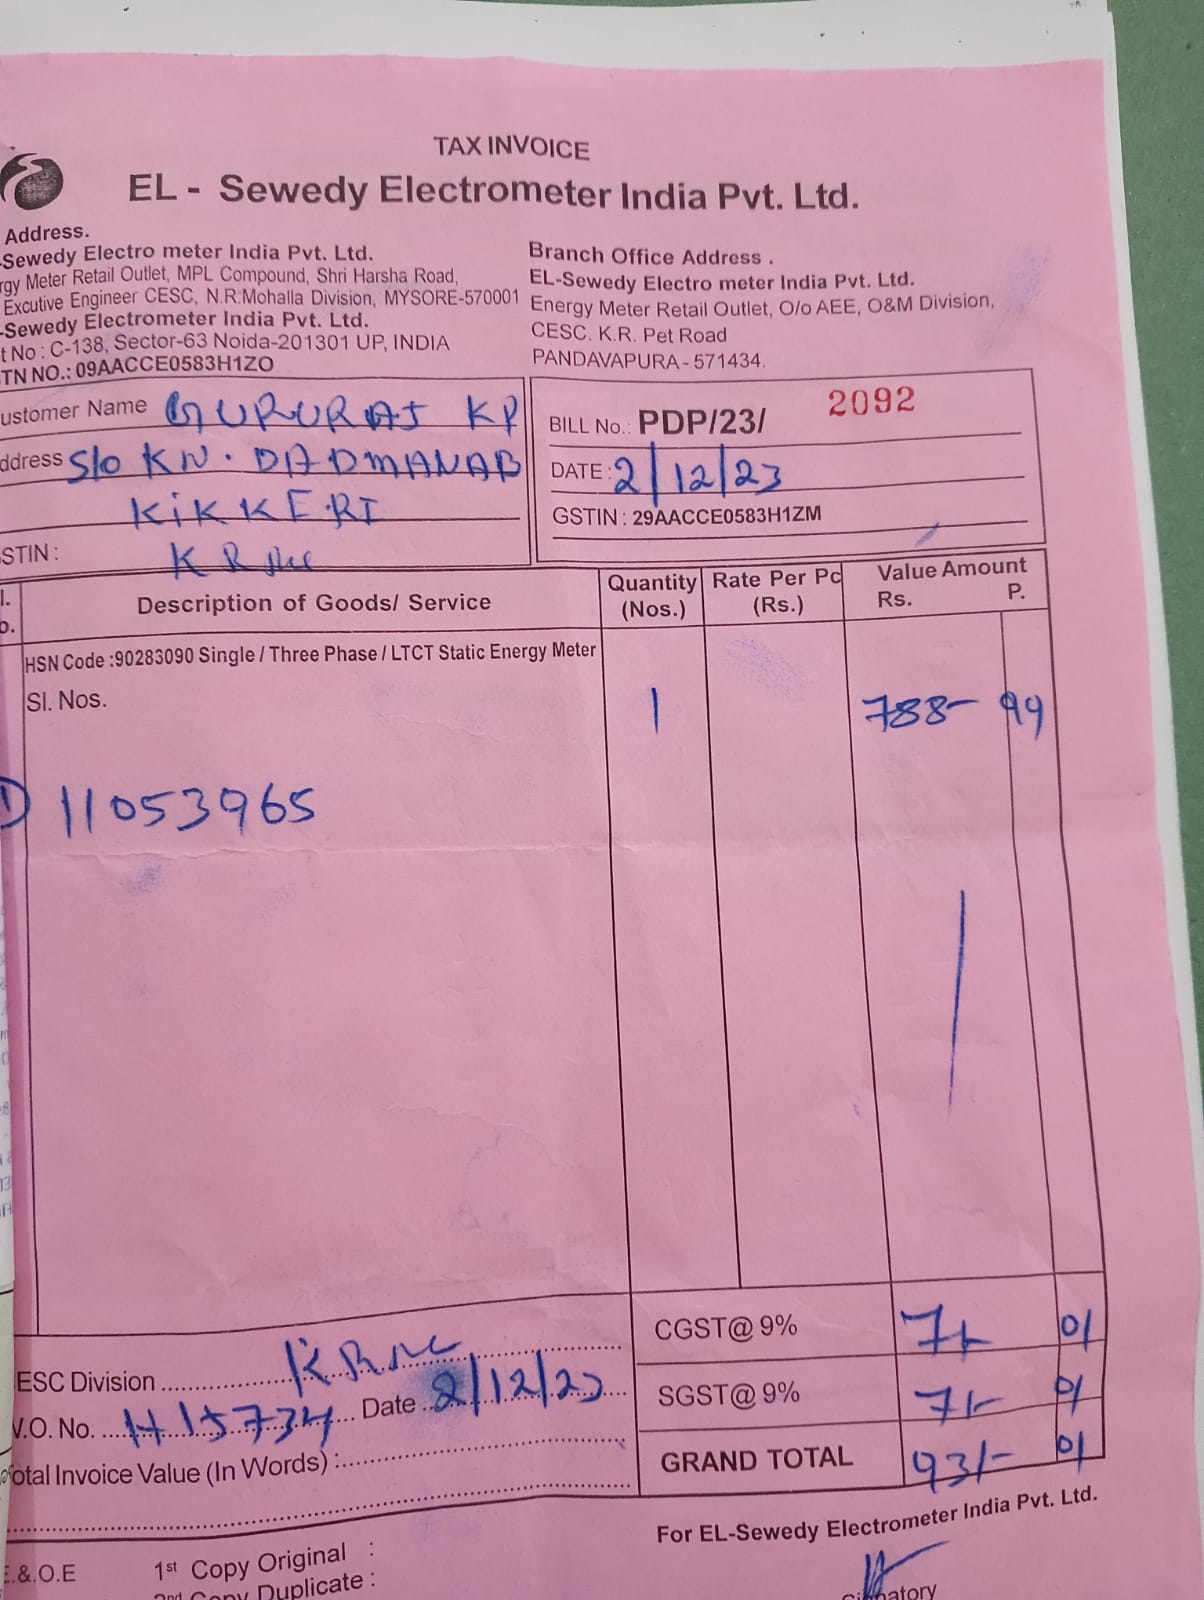 TAX INVOICE
EL - Sewedy Electrometer India Pvt. Ltd.
Address.
-Sewedy Electro meter India Pvt. Ltd.
rgy Meter Retail Outlet, MPL Compound, Shri Harsha Road,
Excutive Engineer CESC, N.R.Mohalla Division, MYSORE-570001
-Sewedy Electrometer India Pvt. Ltd.
t No : C-138, Sector-63 Noida-201301 UP, INDIA
TN NO.: 09AACCE0583H1ZO
Branch Office Address .
EL-Sewedy Electro meter India Pvt. Ltd.
Energy Meter Retail Outlet, O/o AEE, O&M Division,
CESC. K.R. Pet Road
PANDAVAPURA - 571434.
ustomer Name GURURAJ KP
ddress S/o KN. DADMANAB
KIKKERI
STIN :
K R
BILL No.: PDP/23/ 2092
DATE : 2/12/23
GSTIN : 29AACCE0583H1ZM
l. Description of Goods/ Service Quantity (Nos.) Rate Per Pc (Rs.) Value Amount Rs. P.
o.
HSN Code :90283090 Single / Three Phase / LTCT Static Energy Meter
Sl. Nos. 1 788- 99
1) 11053965
CGST@ 9% 71- 01
SGST@ 9% 71- 01
GRAND TOTAL 931- 01
ESC Division
V.O. No. Date 2/12/23
otal Invoice Value (In Words) :
For EL-Sewedy Electrometer India Pvt. Ltd.
E.&.O.E 1st Copy Original :
2nd Copy Duplicate :